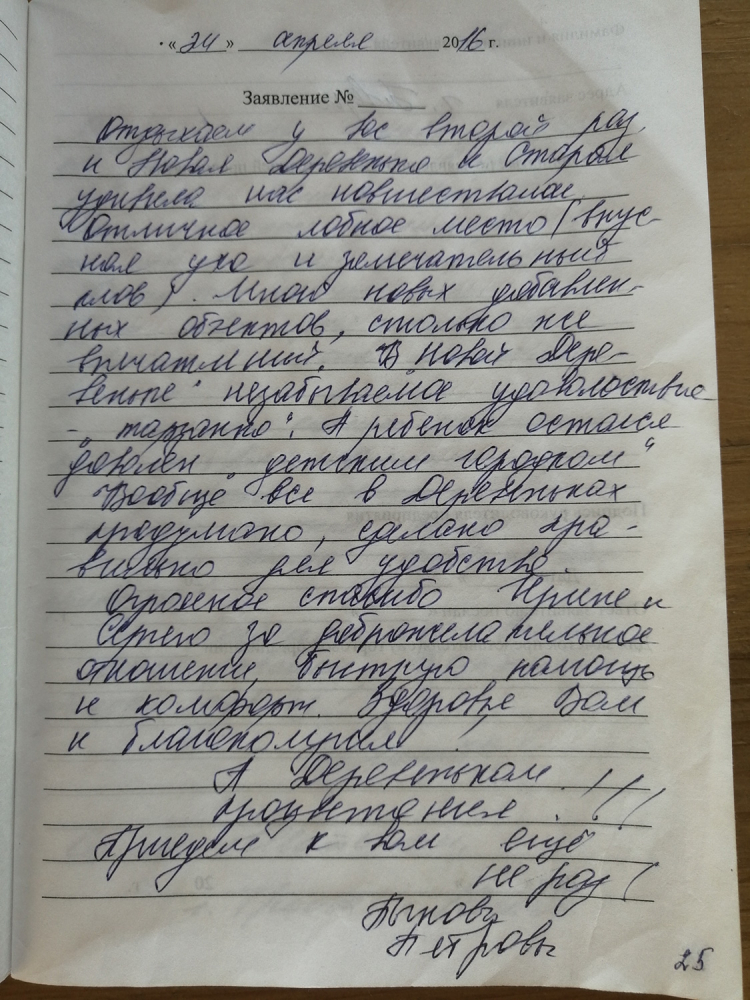 «24» апреля 2016 г.
Заявление №
Отдыхаем у Вас второй раз,
и Новая Деревенька и Старая
удивила нас новшествами.
Отличное лобное место (вкус-
ная уха и замечательный
плов). Много новых добавлен-
ных объектов, столько же
впечатлений. В Новой Дере-
веньке" незабываемое удовольствие
- "тарзанка". А ребёнок остался
доволен "детским городком"
Вообще все в Деревеньках
продумано, сделано пра-
вильно для удобства.
Огромное спасибо Ирине и
Сергею за доброжелательное
отношение, быструю помощь
и комфорт. Здоровья Вам
и благополучия!
А Деревенькам
процветания!!!
Приедем к вам ещё
не раз!
Петровы
25